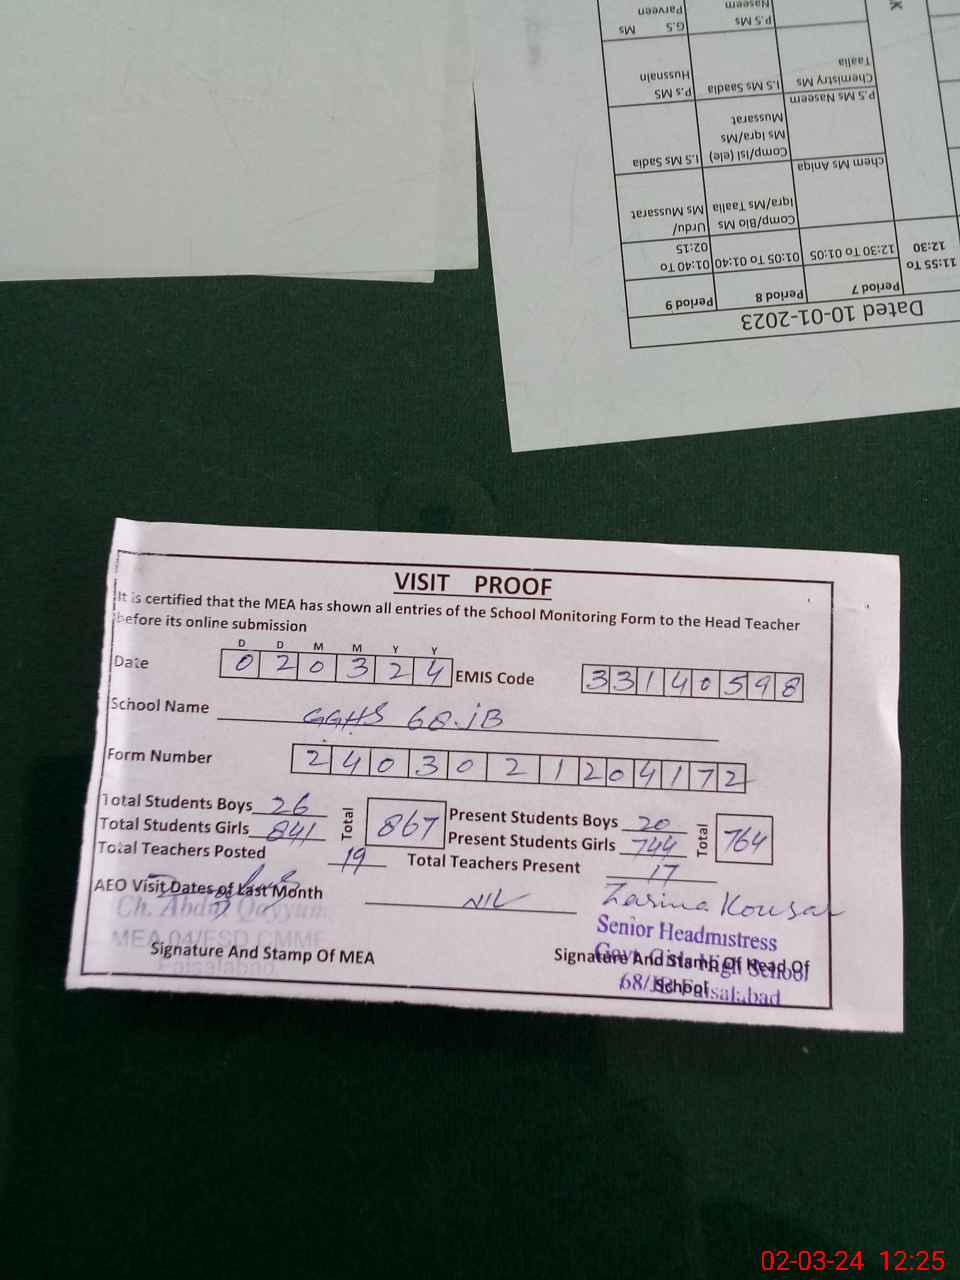 P.S Ms Naseem
G.S Ms Parveen
Chemistry Ms Taalia
I.S Ms Saadia
P.s MS Hussnain
P.S Ms Naseem
Comp/Isl (ele) Ms Iqra/Ms Mussarat
I.S Ms Sadia
chem Ms Aniqa
Comp/Bio Ms Iqra/Ms Taalia
Urdu/ Ms Mussarat
11:55 To 12:30
12:30 To 01:05
01:05 To 01:40
01:40 To 02:15
Period 7
Period 8
Period 9
Dated 10-01-2023
VISIT PROOF
It is certified that the MEA has shown all entries of the School Monitoring Form to the Head Teacher
before its online submission
D D M M Y Y
Date 0 2 0 3 2 4 EMIS Code 3 3 1 4 0 5 9 8
School Name GGHS 68.JB
Form Number 2 4 0 3 0 2 1 2 0 4 1 7 2
Total Students Boys 26 Total 867 Present Students Boys 20 Total 764
Total Students Girls 841 Present Students Girls 744
Total Teachers Posted 19 Total Teachers Present 17
AEO Visit Dates of Last Month NIL Zarina Kousar
Ch. Abdul Qayyum
Senior Headmistress
MEA 04/FSD CMMF
Govt. Girls High School
Faisalabad
68/JB Faisalabad
Signature And Stamp Of MEA
Signature And Stamp Of Head Of
School
02-03-24 12:25